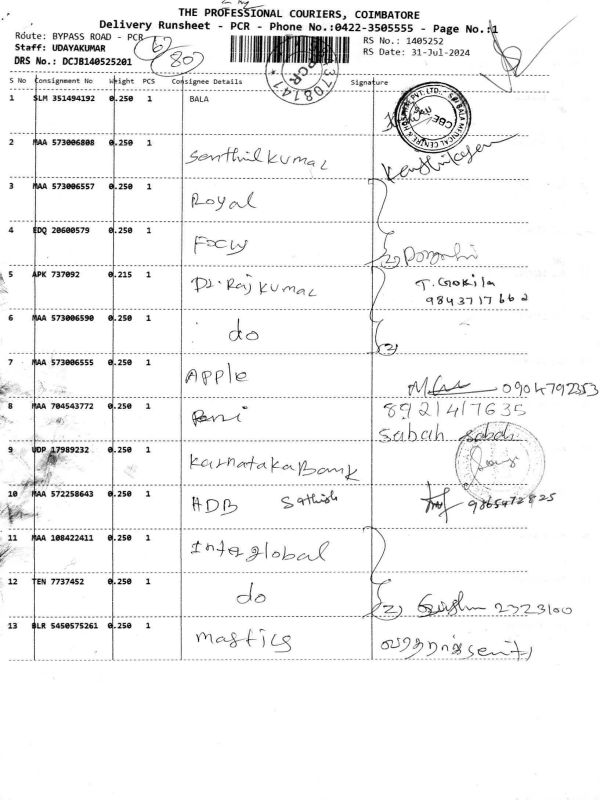 THE PROFESSIONAL COURIERS, COIMBATORE
Delivery Runsheet - PCR - Phone No.:0422-3505555 - Page No.:1
Route: BYPASS ROAD - PCR
RS No.: 1405252
Staff: UDAYAKUMAR
RS Date: 31-Jul-2024
DRS No.: DCJB140525201
62
80
S No Consignment No Weight PCS Consignee Details Signature
1 SLM 351494192 0.250 1 BALA
2 MAA 573006808 0.250 1 Senthilkumar
3 MAA 573006557 0.250 1 Royal
4 EDQ 20600579 0.250 1 2
5 APK 737092 0.215 1 Dr. Raj kumar T. Gokila
9843717662
6 MAA 573006590 0.250 1 do 2
7 MAA 573006555 0.250 1 Apple 0904792353
8 MAA 704543772 0.250 1 8921417635
sabah sabah
9 UDP 17989232 0.250 1 Karnataka Bank
10 MAA 572258643 0.250 1 HDB Sathish 9865472825
11 MAA 108422411 0.250 1 Interglobal
12 TEN 7737452 0.250 1 do 2 2323100
13 BLR 5450575261 0.250 1 mastics